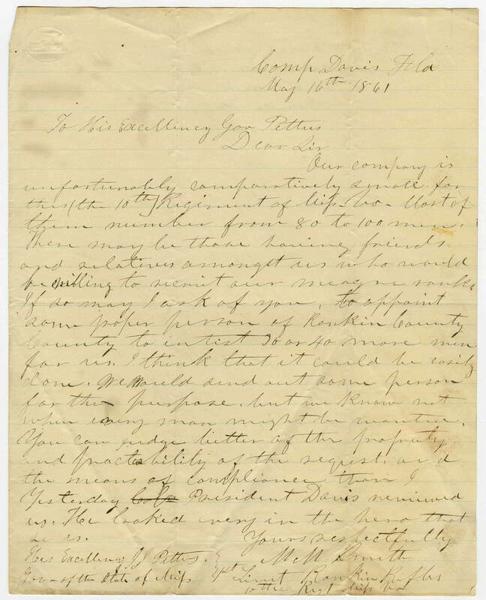 Camp Davis Fla
May 16th 1861
To His Excellency Gov Pettus
Dear Sir
Our company is
unfortunately comparatively small for
this (the 10th) Regiment of Miss Most of
them number from 80 to 100 men.
There may be those having friends
and relatives amongst us who would
be willing to recruit our meagre ranks
If so may I ask of you, to appoint
some proper person of Rankin County
County to enlist 30 or 40 more men
for us. I think that it could be easily
done. We would send out some person
for the purpose, but we know not
when every man might be wanted.
You can judge better of the propriety
and practability of the request, and
the means of compliance than I
Yesterday President Davis reviewed
us. He looked every in the hero that
he is.
Yours respectfully
M M Smith
His Excellency J J Pettus
Gov of the State of Miss
4th Lieut Rankin Rifles
10th Regt Miss